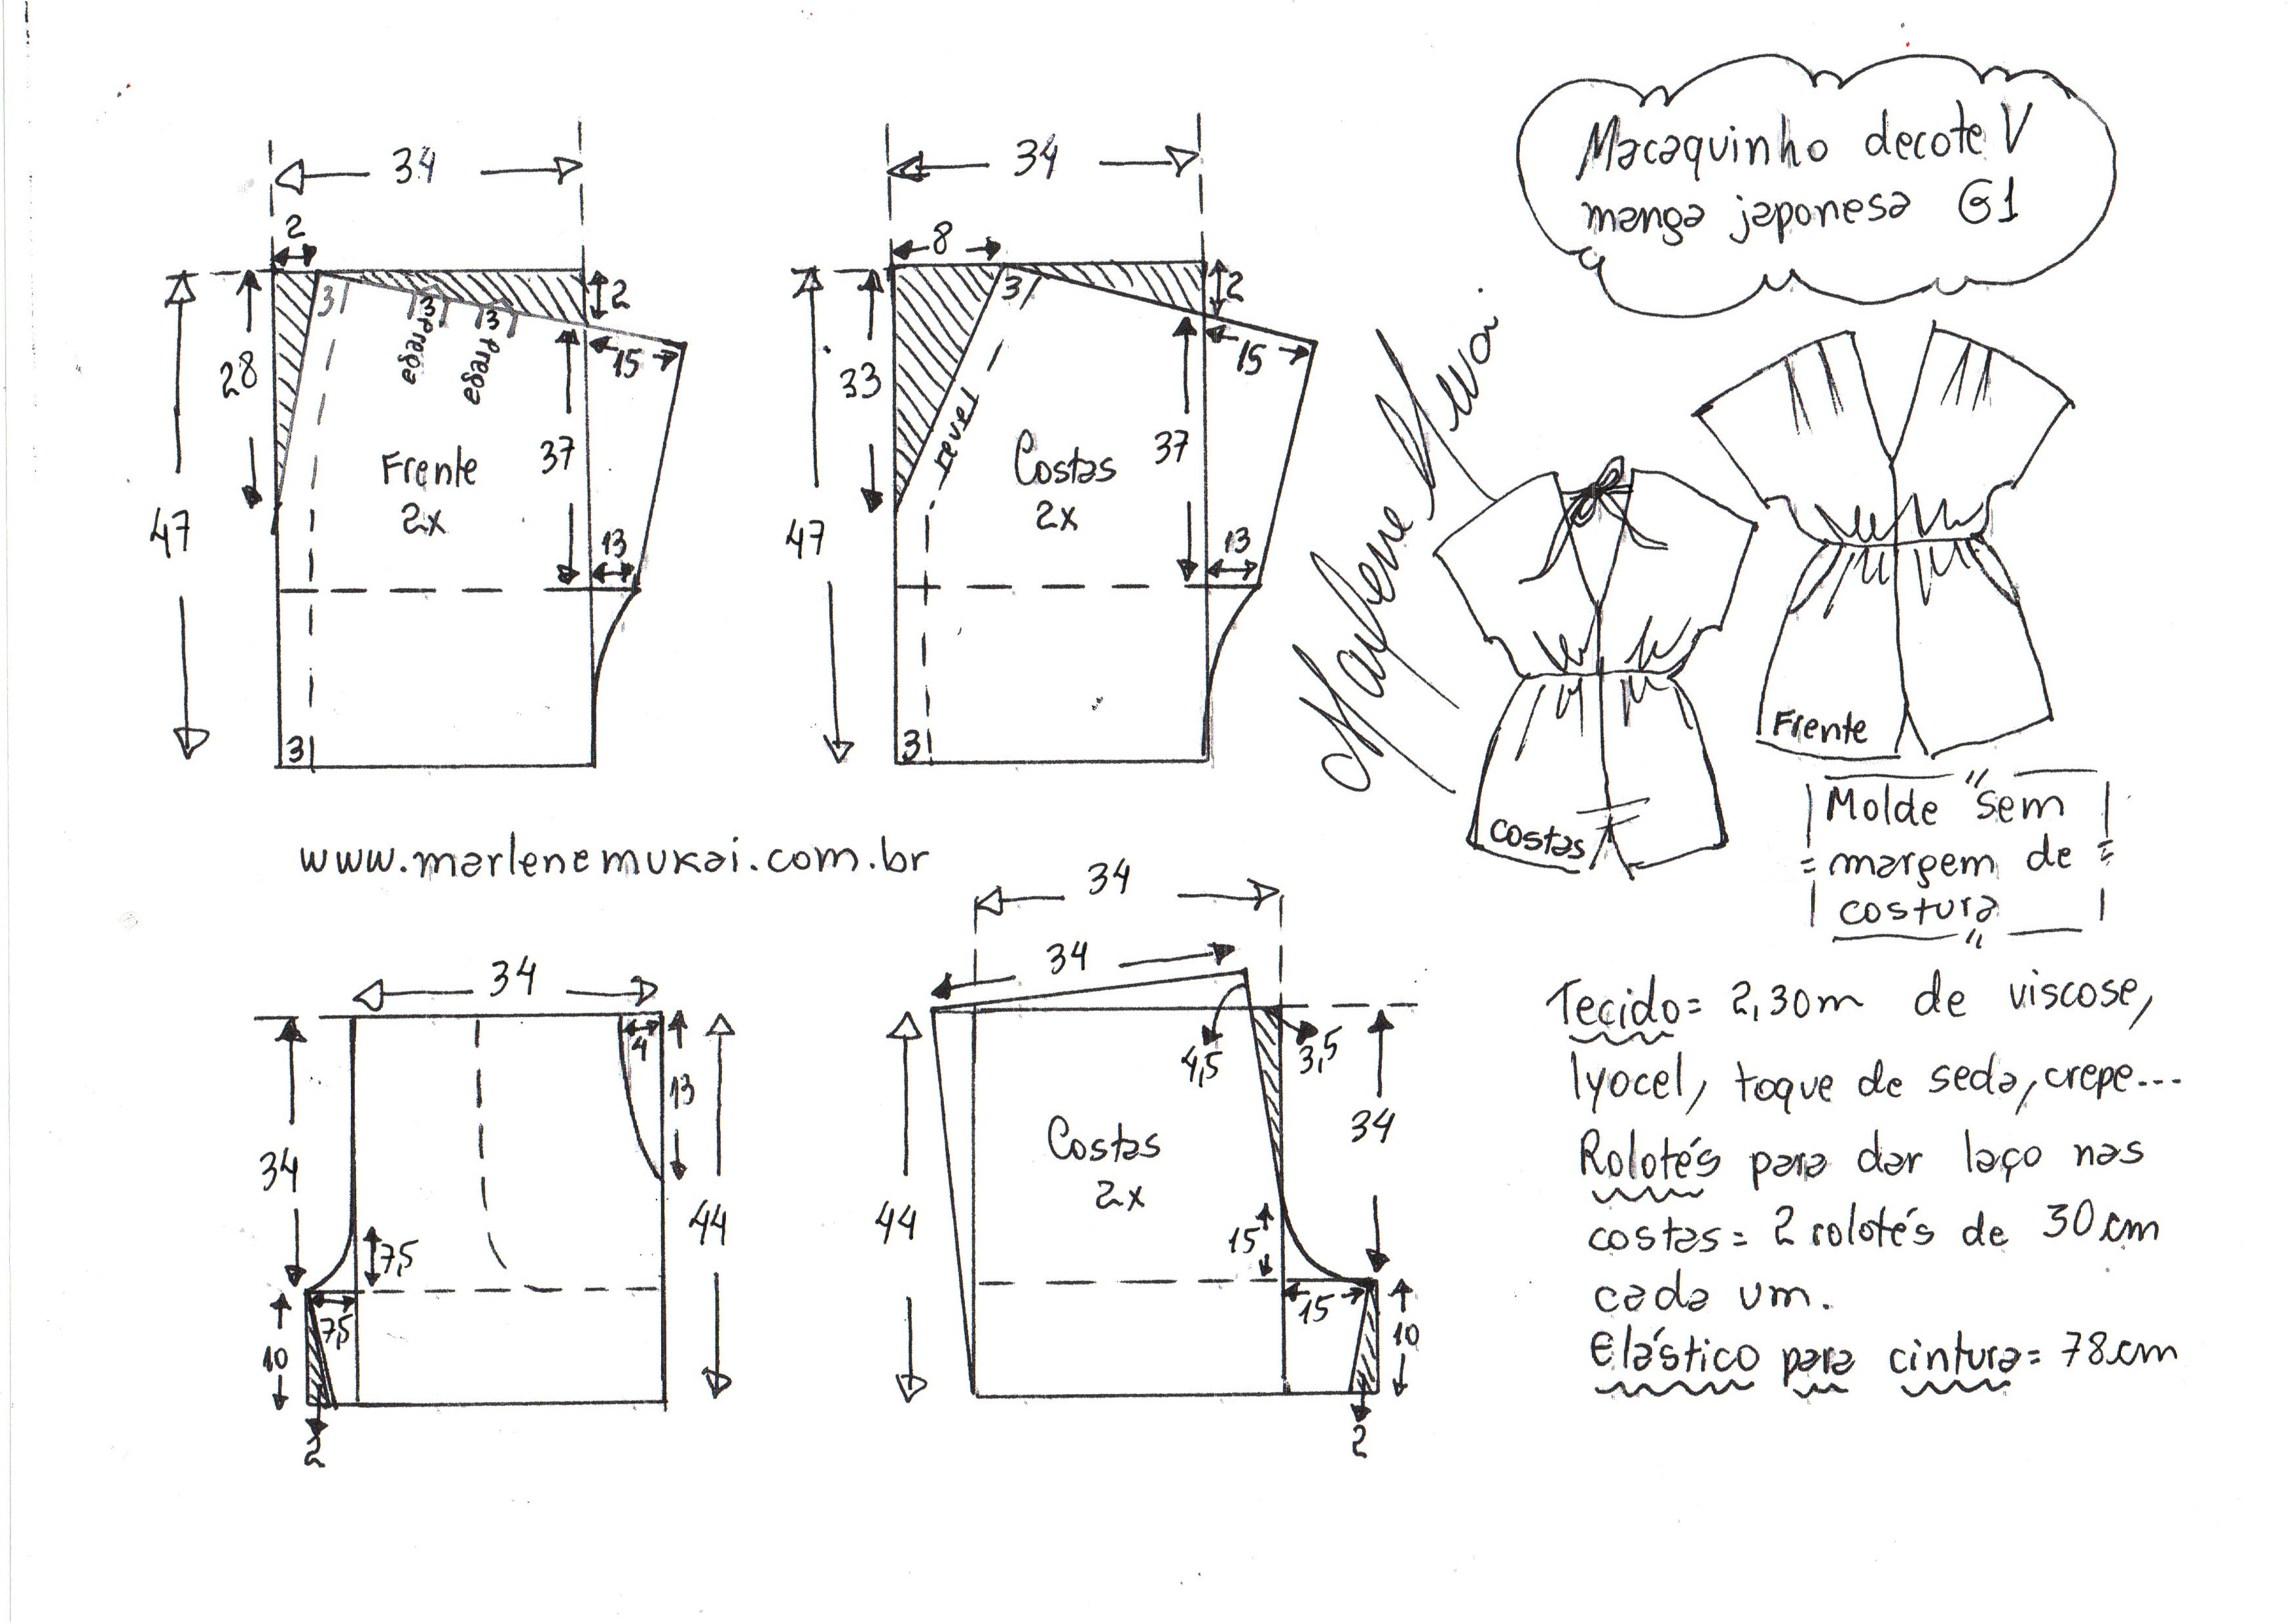 Macaquinho decote V
manga japonesa G1
34
2
2
47
28
3
3
prega
3
prega
15
37
Frente
2x
13
3
34
8
2
47
33
3
15
37
revel
Costas
2x
13
3
Marlene Mukai
Frente
Costas
www.marlenemukai.com.br
"
Molde sem
margem de
costura
"
34
34
4
13
44
7,5
7,5
10
2
34
34
4,5
3,5
34
44
Costas
2x
15
15
10
2
Tecido= 2,30m de viscose,
lyocel, toque de seda, crepe...
Rolotés para dar laço nas
costas= 2 rolotés de 30cm
cada um.
Elástico para cintura= 78cm